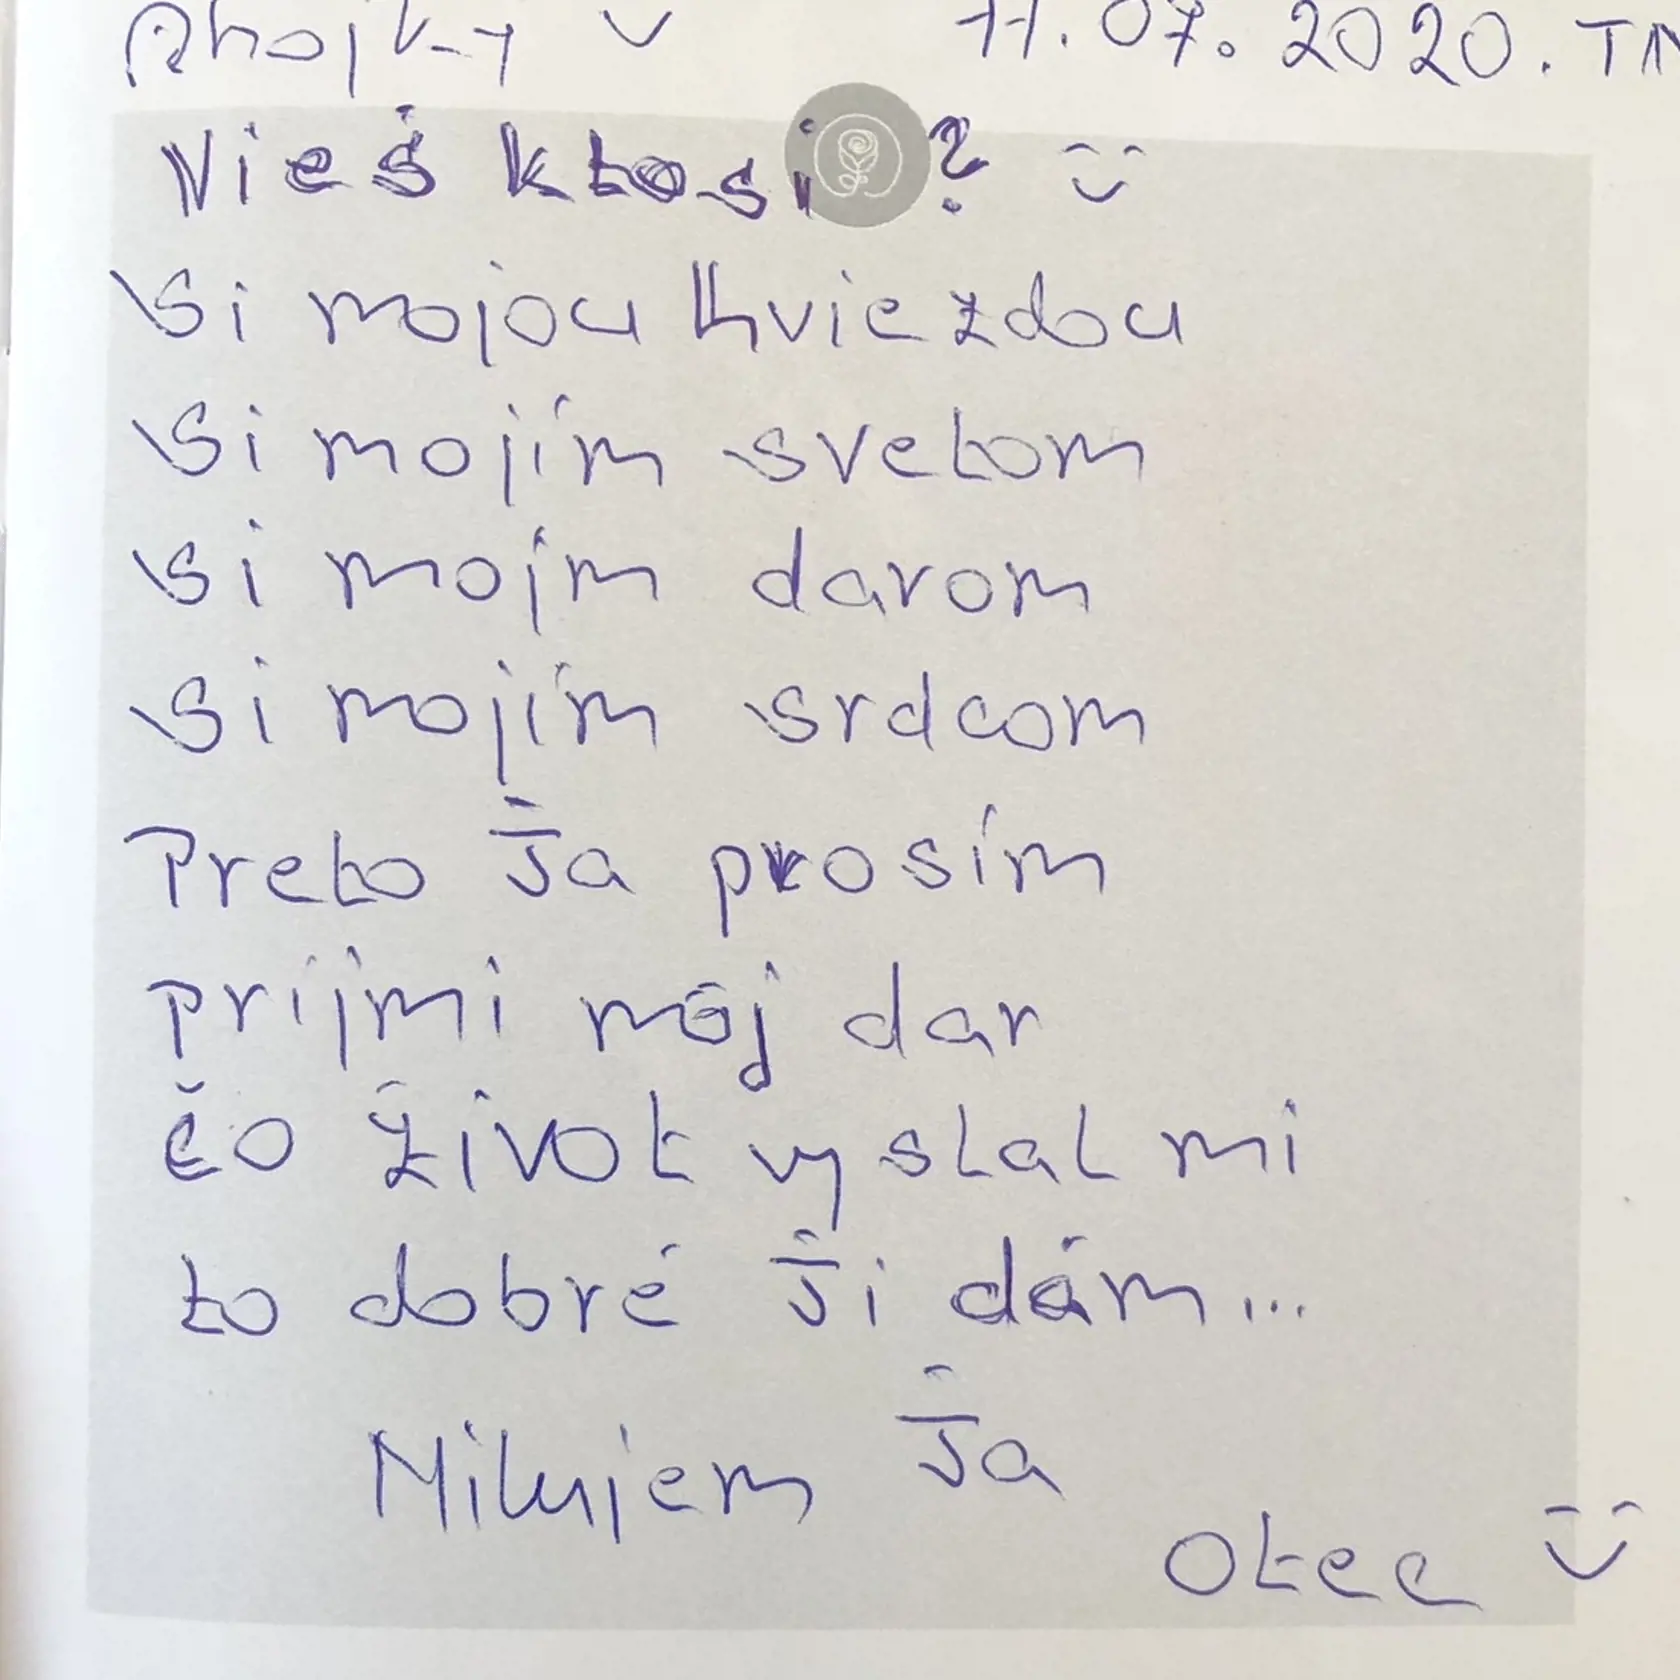 Ahojky 11.07.2020. TN
Vieš kto si?
Si mojou hviezdou
Si mojím svetom
Si mojm darom
Si mojím srdcom
Preto Ťa prosím
príjmi môj dar
čo život vystlal mi
to dobré Ti dám...
Milujem Ťa
Otec